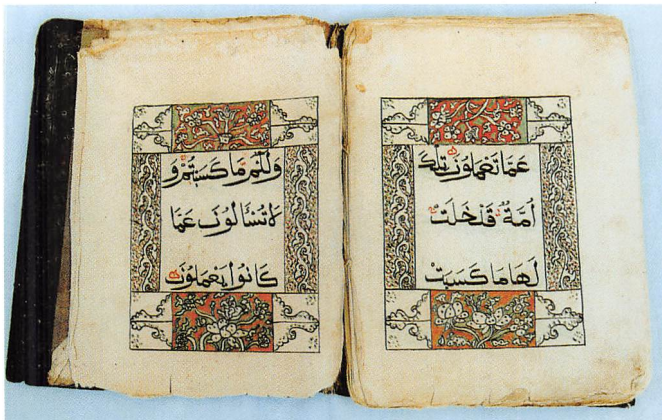 عَمَّا تَعْمَلُونَ تِلْكَ
اُمَّةٌ قَدْ خَلَتْ
لَهَا مَا كَسَبَتْ
وَلَكُمْ مَا كَسَبْتُمْ وَ
لَا تُسْأَلُونَ عَمَّا
كَانُوا يَعْمَلُونَ